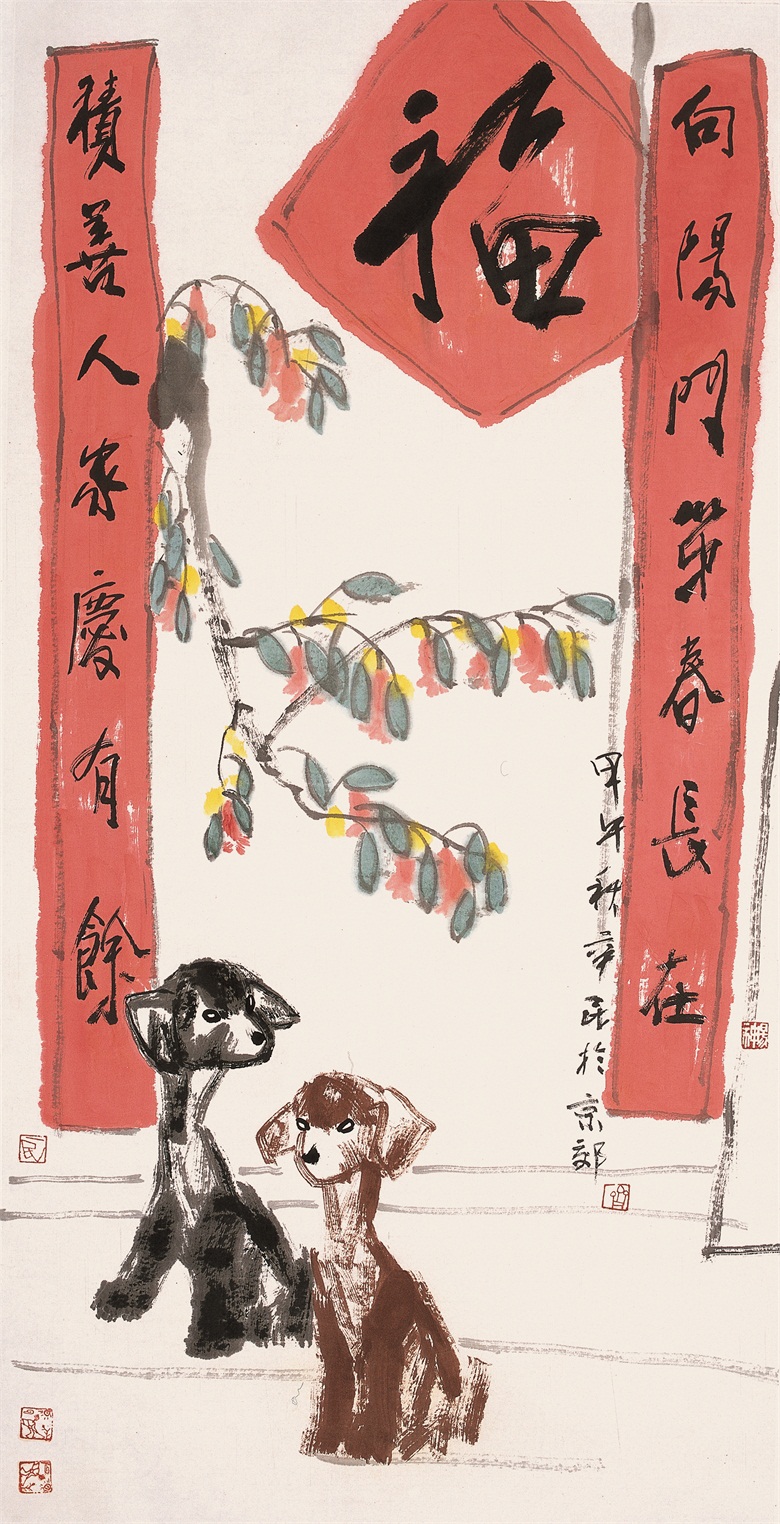 福
向陽門第春長在
積善人家慶有餘
甲午秋辛民於京郊
民